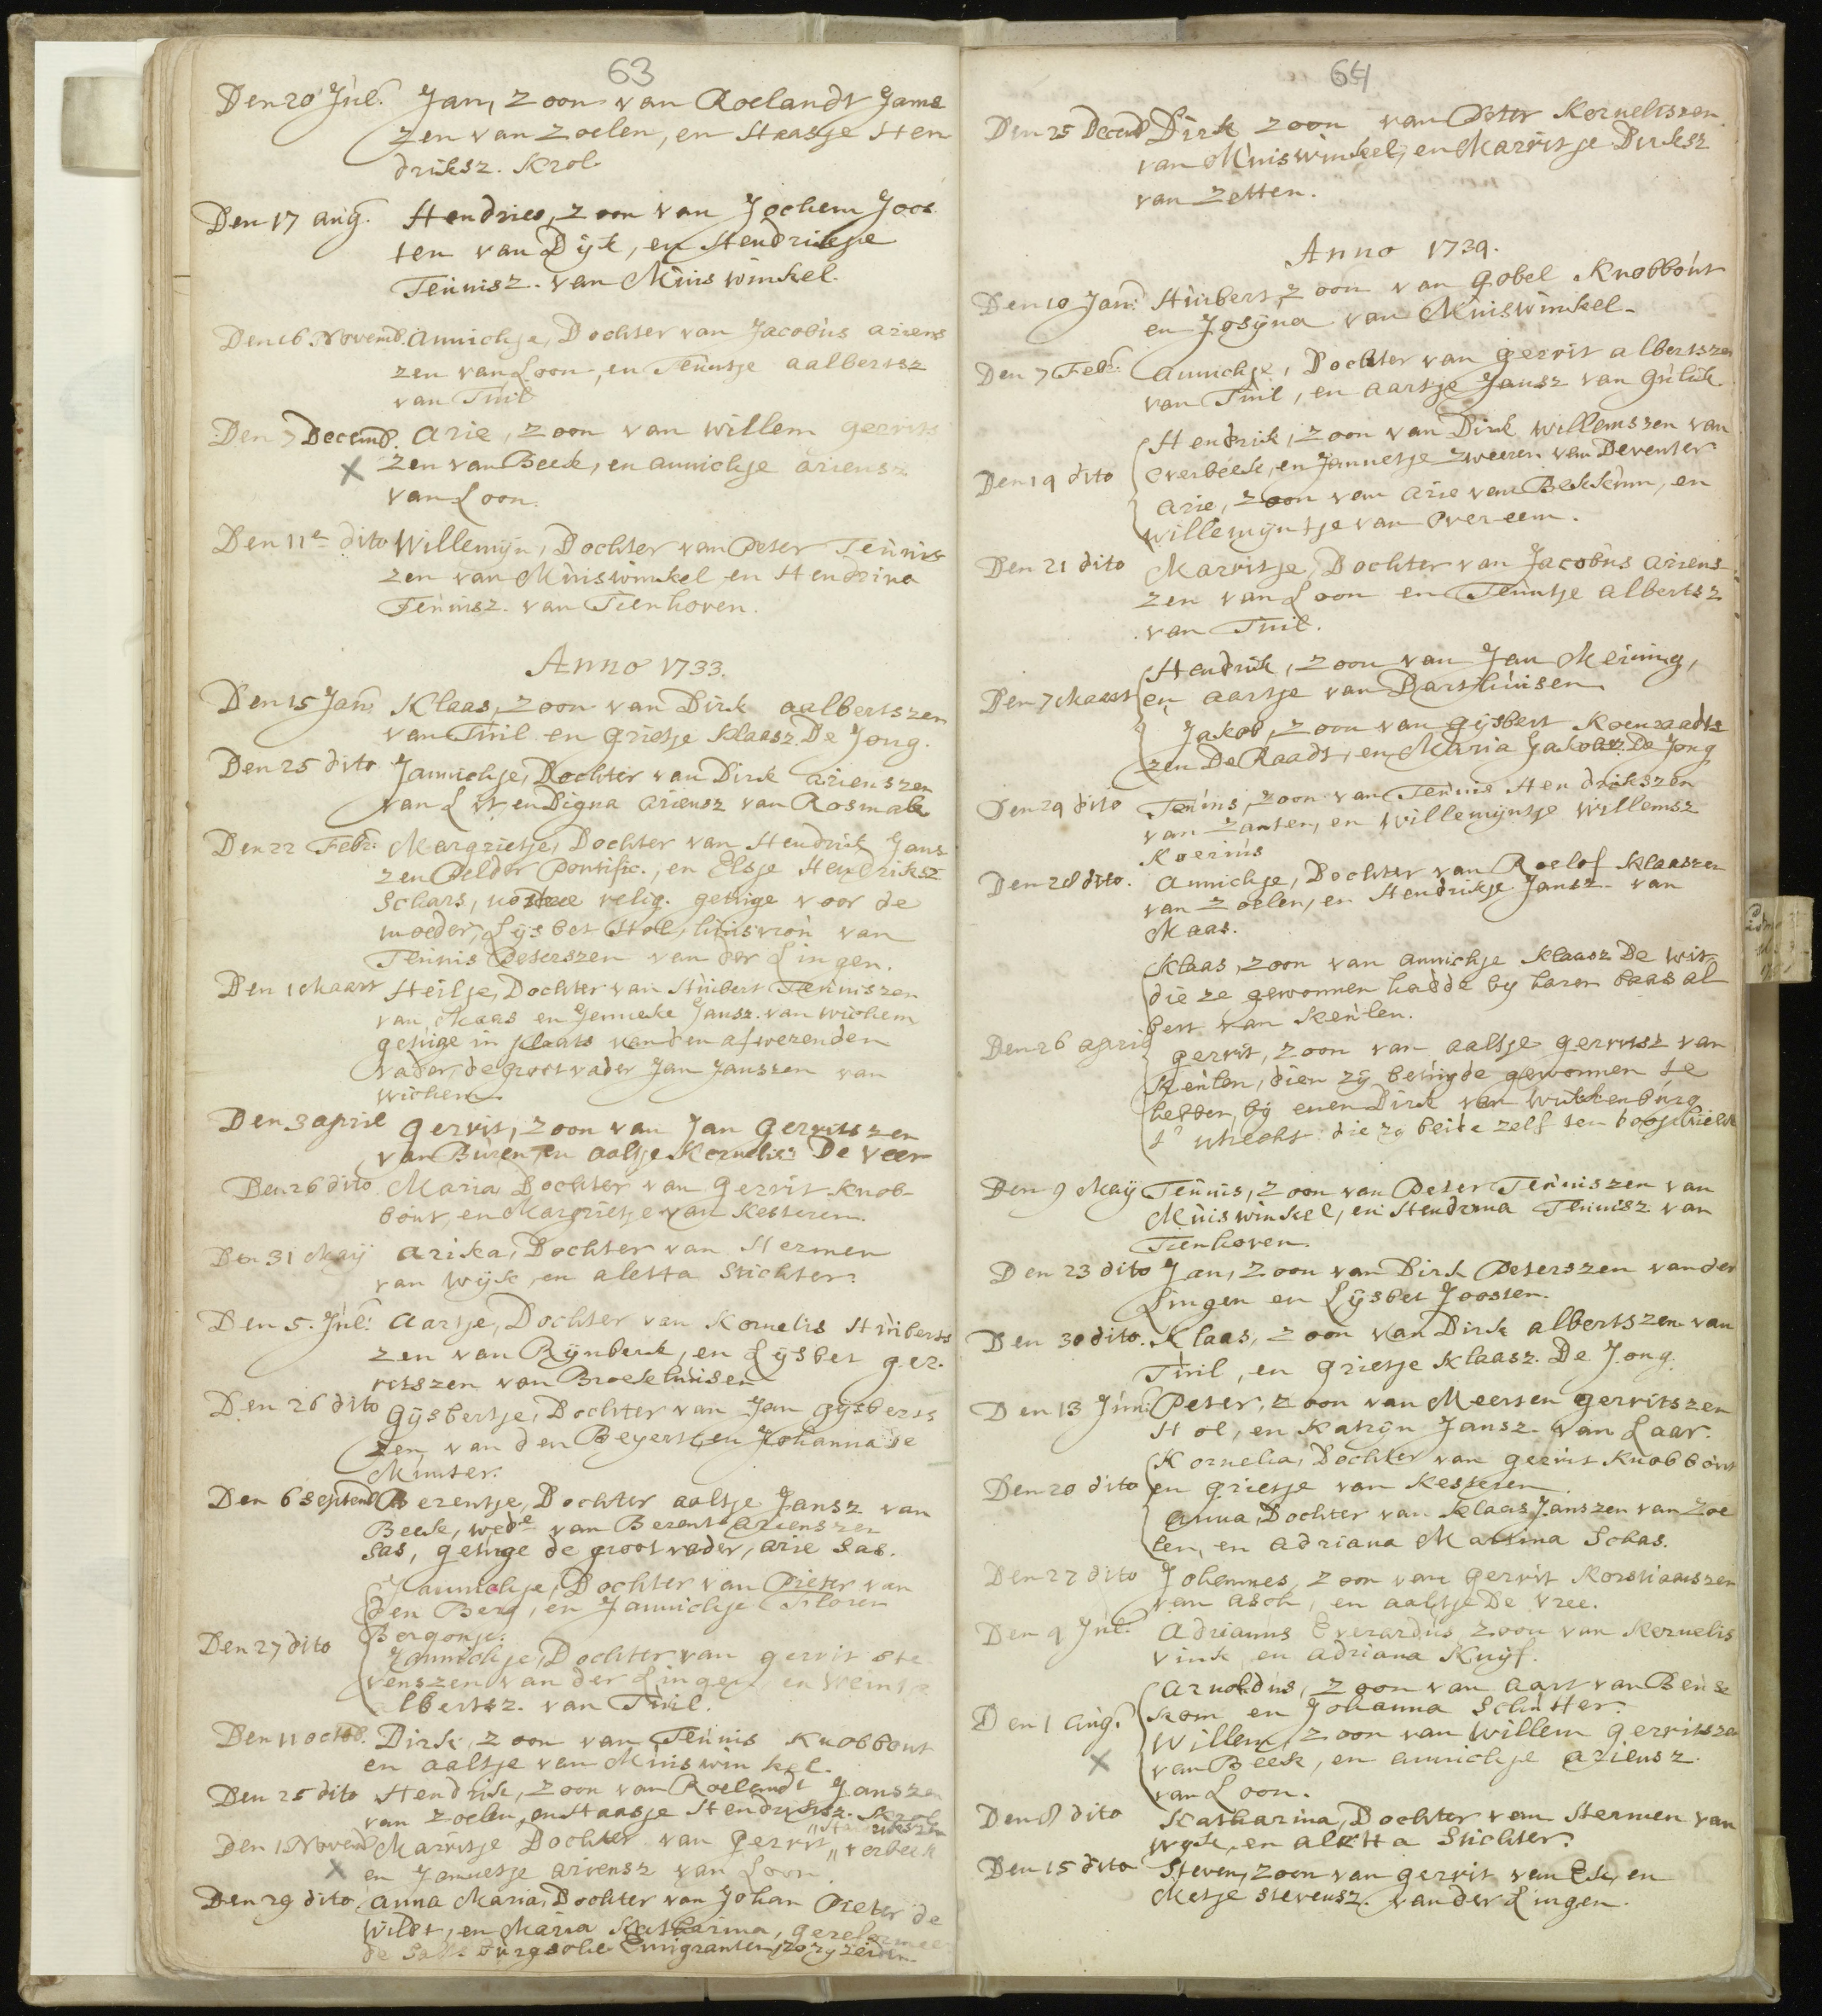 63
Den 20 Jul. Jan, zoon van Roelandt Jans
zen van Zoelen, en Staasje Hen
driksz. Krol.
Den 17 aug. Hendries, zoon van Jochem Joos
ten van Dijk, en Hendrikje
Teunisz. van Muiswinkel.
Den 16 Novemb. Annichje, Dochter van Jacobus ariens
zen van Loon, en Teuntje aalbertsz
van Tuil
Den 7 Decemb. Arie, zoon van willem gerrits
X zen van Beek, en annichje ariensz
van Loon.
Den 11e dito Willemijn, Dochter van Peter Teunis
zen van Muiswinkel en Hendrina
Teunisz. van Tienhoven.
Anno 1733.
Den 15 Jan. Klaas, zoon van Dirk aalbertszen
van Tuil en grietje Klaasz. De Jong.
Den 25 dito Jannichje, Dochter van Dirk arienszen
van Lit, en Digna ariensz van Rosmale
Den 22 Febr. Margrietje, Dochter van Hendrik Jans
zen Pelder Pontific., en Elsje Hendriksz
Schars, nostrae relig. getuige voor de
moeder, Lijsbet Hol, huisvrou van
Teunis Peterszen van der Lingen.
Den 1 Maart Heiltje, Dochter van Huibert Teuniszen
van Maas en Jenneke Jansz. van wichem
getuige in plaats van den afwezenden
vader, de grootvader Jan Janszen van
wichem.
Den 3 april gerrit, zoon van Jan gerritszen
van Buren, en aaltje Kornelisz De Veer
Den 26 dito Maria Dochter van gerrit Knob-
bout, en Margrietje van Kesteren.
Den 31 Maij arika, Dochter van Hermen
van Wijk, en aletta Stichter.
Den 5. Jul: aartje, Dochter van Kornelis Huiberts
zen van Rijnbeek, en Lijsbet ger-
ritszen van Broekhuisen
Den 26 dito gijsbertje, Dochter van Jan gijsberts
zen van den Beyerst, en Johanna de
Munter.
Den 6 Septemb. Berentje, Dochter aaltje Jansz van
Beek, wede van Berent arienszen
Sas, getuige de grootvader, arie Sas.
Jannichje, Dochter van Pieter van
den Berg, en Jannichje Floren
Bergonje.
Den 27 dito Jannichje, Dochter van gerrit Ste
venszen van der Lingen, en Weintje
albertsz. van Tuil.
Den 11 octob. Dirk, zoon van Teunis Knobbout
en aaltje van Muiswinkel.
Den 25 dito Hendrik, zoon van Roelandt Janszen
van Zoelen, en Staasje Hendriksz. Krol
Den 1 Novemb Marritje Dochter van gerrit verbeek
X en Jannetje ariensz van Loon
Den 29 dito anna Maria, Dochter van Johan Pieter de
Wildt, en Maria Katharina, gereformeer
de Saltsburgsche Emigranten, zo zy zeiden
64
Den 25 Decemb Dirk zoon van Peter Korneliszen.
van Muiswinkel, en Marritje Dirksz
van Zetten.
Anno 1734.
Den 10 Jan: Huibert, zoon van gobel Knobbout
en Josijna van Muiswinkel.
Den 7 Febr. annichje, Dochter van gerrit albertszen
van Tuil, en aartje Jansz van Gulik
Hendrik, zoon van Dirk Willemszen van
Overbeek, en Jannetje Zweeren van Deventer
Den 19 dito
arie, zoon van arie van Bekkum, en
willemijntje van Overeem.
Den 21 dito Marritje, Dochter van Jacobus ariens
zen van Loon en Teuntje albertsz
van Tuil.
Hendrik, zoon van Jan Meining,
Den 7 Maart en aartje van Barthuisen
Jakob, zoon van gijsbert Koenraadts
zen De Raadt, en Maria Jakobsz. De Jong
Den 29 dito Teunis, zoon van Teunis Hendrikszen
van Zanten, en Willemijntje Willemsz
Koerius
Den 28 dito. annichje, Dochter van Roelof Klaaszen
van Zoelen, en Hendrikje Jansz. van
Maas.
Klaas, zoon van annichje Klaasz De Wit
die ze gewonnen hadde by haren baas al
bert van Keulen.
Den 26 april
gerrit, zoon van aaltje gerritsz van
Keulen, dien zij betuigde gewonnen te
hebben bij enen Dirk van Wukkenburg
t' utrecht: die zy beide zelf ten doop hielden
Den 9 Maij Teunis, zoon van Peter Teuniszen van
Muiswinkel, en Hendrina Teunisz van
Tienhoven.
Den 23 dito Jan, zoon van Dirk Peterszen van der
Lingen en Lijsbet Joosten.
Den 30 dito. Klaas, zoon van Dirk albertszen van
Tuil, en grietje Klaasz. De Jong.
Den 13 Jun: Peter, zoon van Meerten gerritszen
Hol, en Katrijn Jansz. van Laar.
Kornelia, Dochter van gerrit Knobbout
Den 20 dito en grietje van Kesteren
anna, Dochter van Klaas Janszen van Zoe
len, en adriana Mattina Schas.
Den 27 dito Johannes, zoon van gerrit Korstiaanszen
van asch, en aaltje De Vree.
Den 4 Jul. adrianus Everardus zoon van Kornelis
Vink en adriana Kuijf.
arnoldus, zoon van aart van Beuse
Den 1 aug. kom en Johanna Schutter.
Willem, zoon van Willem gerritszen
X van Beek, en annichje ariensz.
van Loon.
Den 8 dito Katharina, Dochter van Hermen van
Wyk, en aletta Stichter.
Den 15 dito Steven, zoon van gerrit van Ek, en
Metje Stevensz. van der Lingen.